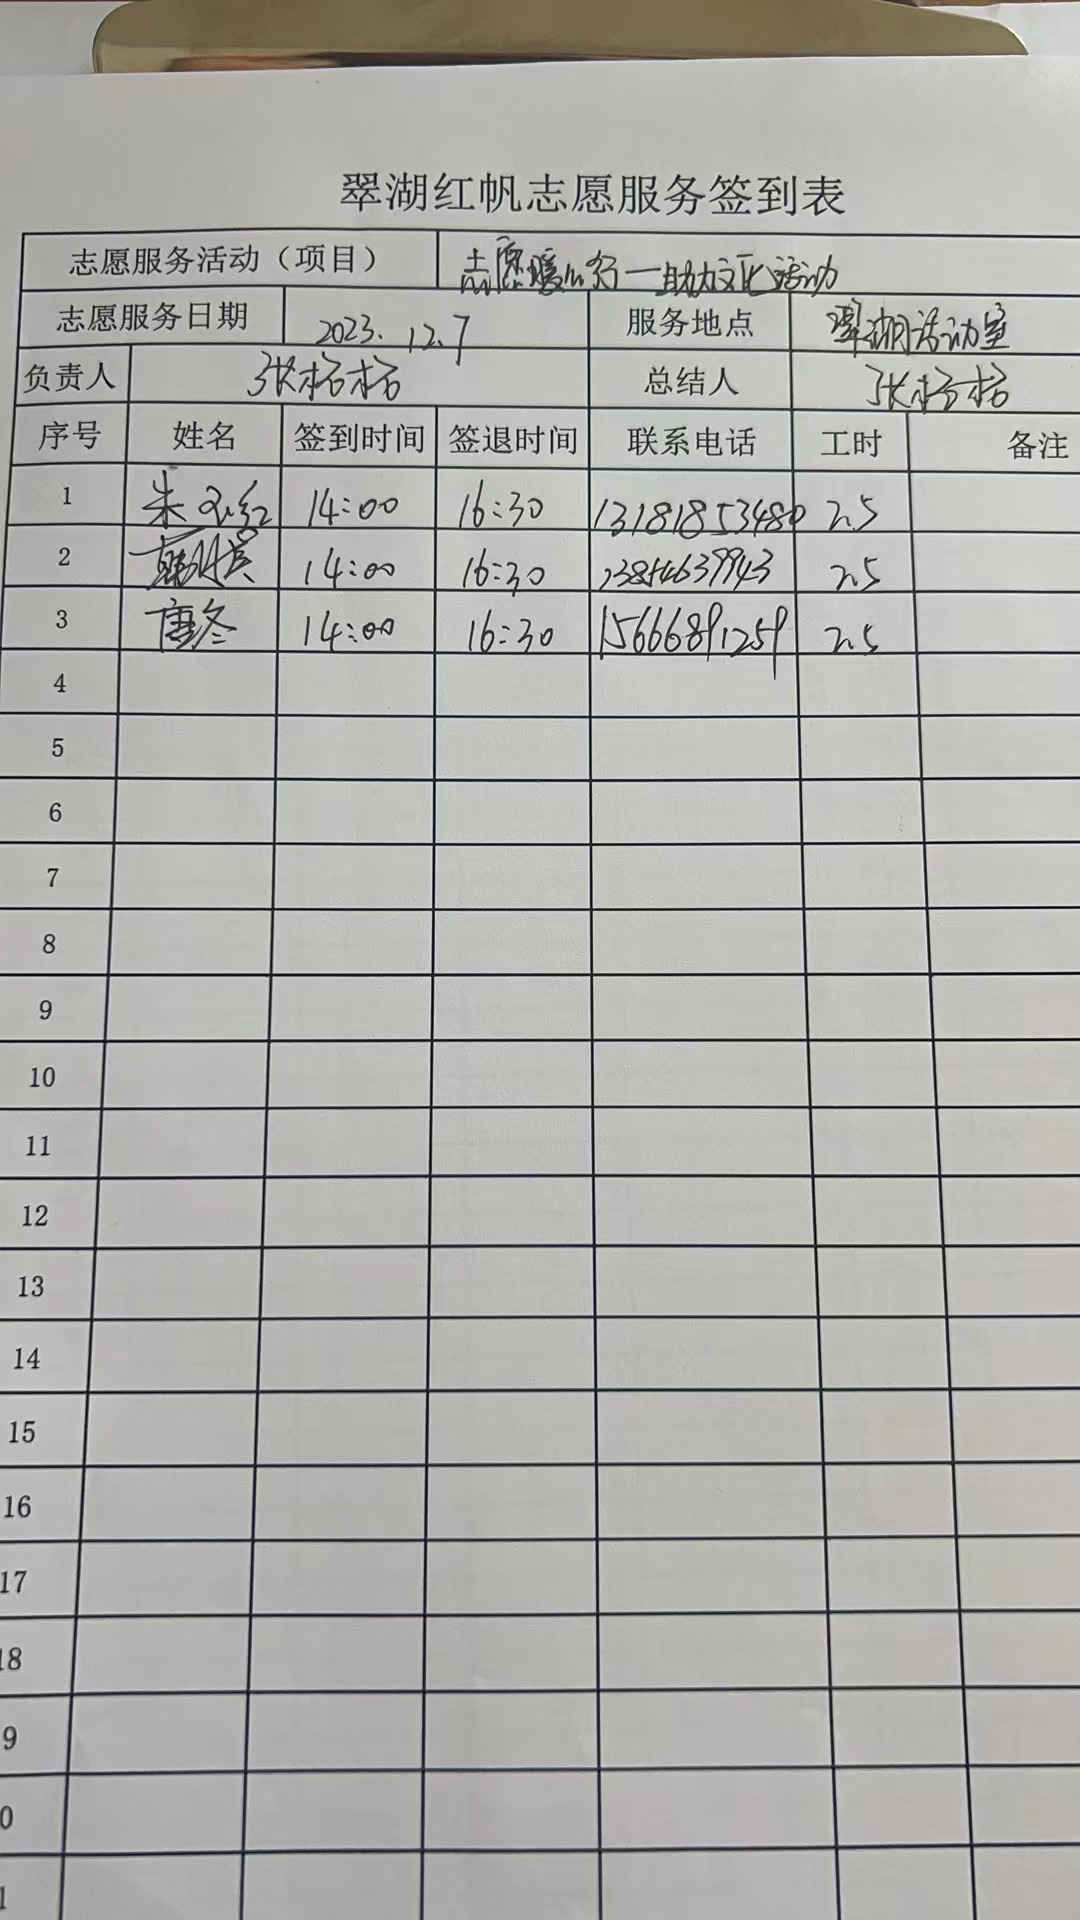 翠湖红帆志愿服务签到表
志愿服务活动（项目） 志愿暖心行—助力文化活动
志愿服务日期 2023.12.7 服务地点 翠湖活动室
负责人 张格格 总结人 张格格
序号 姓名 签到时间 签退时间 联系电话 工时 备注
1 朱 红 14:00 16:30 13181853480 2.5
2 14:00 16:30 13854639943 2.5
3 唐冬 14:00 16:30 15666891259 2.5
4
5
6
7
8
9
10
11
12
13
14
15
16
17
18
9
0
1